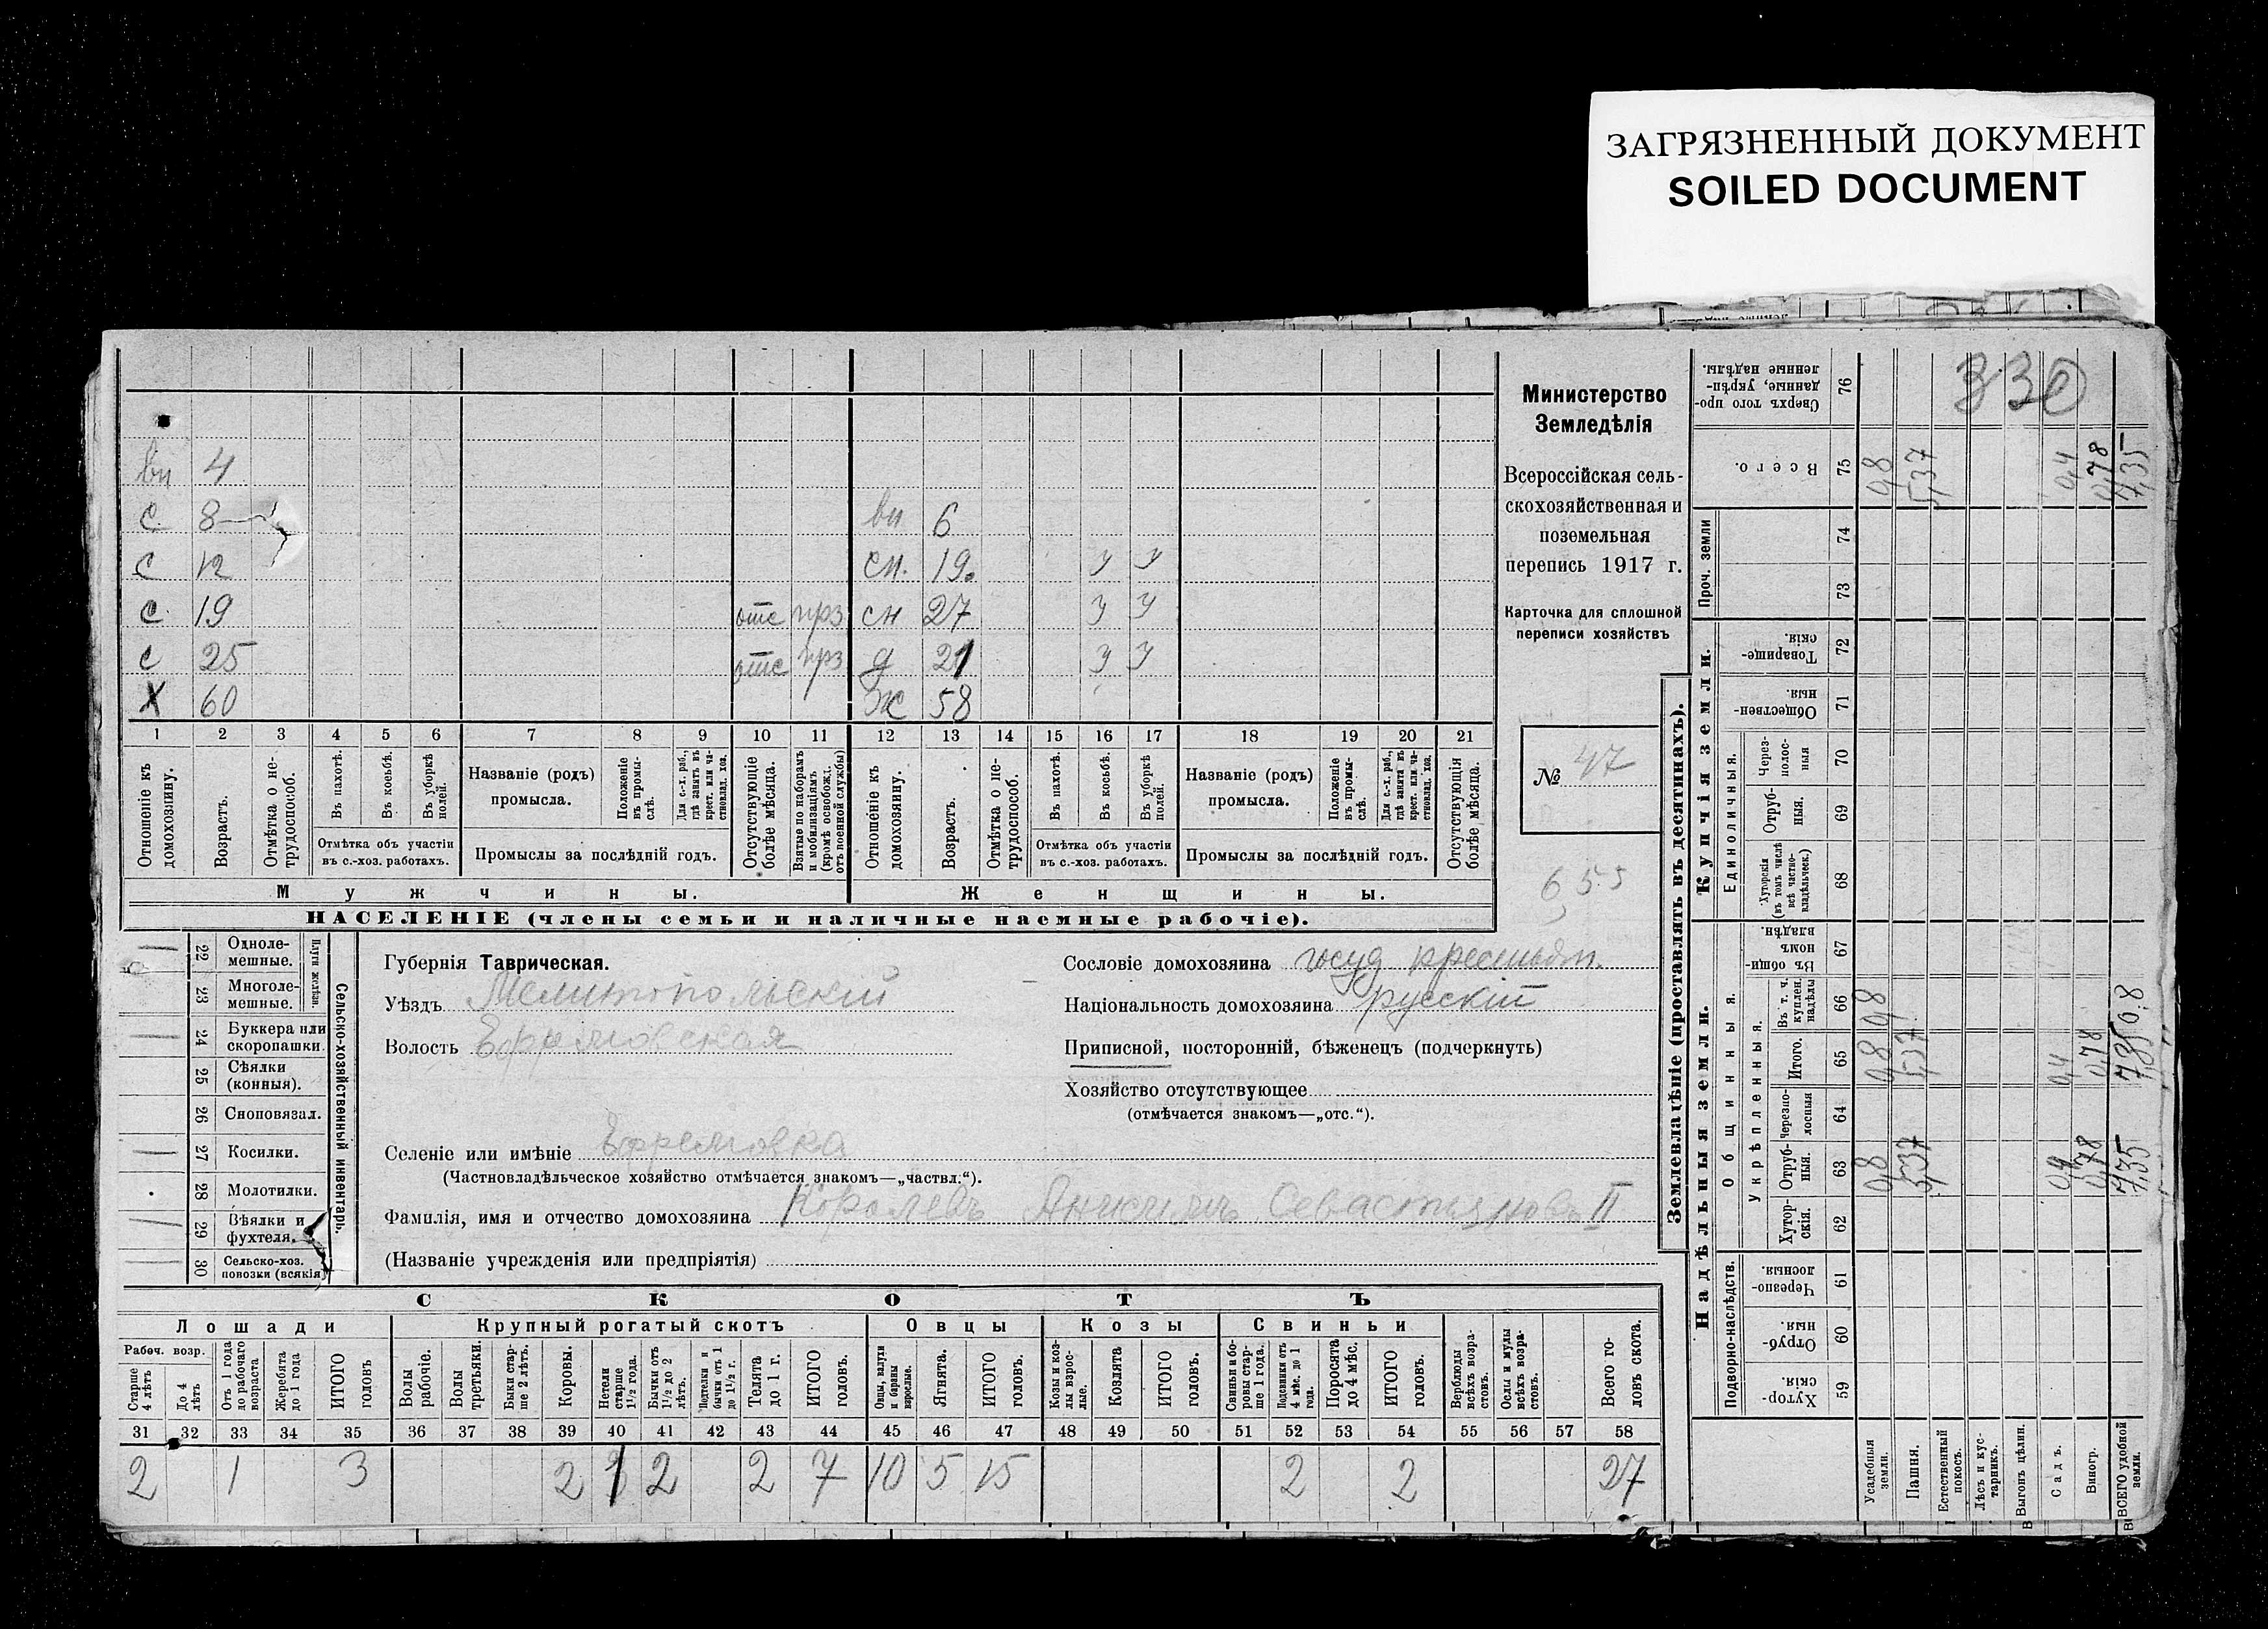 ЗАГРЯЗНЕННЫЙ ДОКУМЕНТ
SOILED DOCUMENT
вн 4
с 8 вн 6
с 12 сн. 19. У У
с 19 отс прз сн 27 У У
с 25 отс прз д 21 У У
Х 60 ж 58
1 2 3 4 5 6 7 8 9 10 11 12 13 14 15 16 17 18 19 20 21
Отношеніе къ домохозяину.
Возрастъ.
Отмѣтка о нетрудоспособ.
Въ пахотѣ.
Въ косьбѣ.
Въ уборкѣ полей.
Отмѣтка объ участіи
въ с.-хоз. работахъ.
Названіе (родъ)
промысла.
Положеніе въ промыслѣ.
Для с.-х. раб., гдѣ занятъ въ крест. или частновлад. хоз.
Промыслы за послѣдній годъ.
Отсутствующіе болѣе мѣсяца.
Взятые по наборамъ и мобилизаціямъ (кромѣ освобожд. отъ военной службы)
Отношеніе къ домохозяину.
Возрастъ.
Отмѣтка о нетрудоспособ.
Въ пахотѣ.
Въ косьбѣ.
Въ уборкѣ полей.
Отмѣтка объ участіи
въ с.-хоз. работахъ.
Названіе (родъ)
промысла.
Положеніе въ промыслѣ.
Для с.-х. раб., гдѣ занята въ крест. или частновлад. хоз.
Промыслы за послѣдній годъ.
Отсутствующія болѣе мѣсяца.
Мужчины.
Женщины.
НАСЕЛЕНІЕ (члены семьи и наличные наемные рабочіе).
Министерство
Земледѣлія
Всероссійская сель-
скохозяйственная и
поземельная
перепись 1917 г.
Карточка для сплошной
переписи хозяйствъ
№ 47
655
22 Одноле-
мешные.
23 Многоле-
мешные.
Плуги желѣзн.
24 Буккера или
скоропашки.
25 Сѣялки
(конныя).
26 Сноповязал.
27 Косилки.
28 Молотилки.
29 Вѣялки и
фухтеля.
30 Сельско-хоз.
повозки (всякія)
Сельско-хозяйственный инвентарь.
Губернія Таврическая.
Уѣздъ Мелитопольскій
Волость Ефремовская
Селеніе или имѣніе Ефремовка
(Частновладѣльческое хозяйство отмѣчается знакомъ—„частвл.“).
Фамилія, имя и отчество домохозяина Королевъ Севастьяновъ II
(Названіе учрежденія или предпріятія)
Сословіе домохозяина госуд крестьян.
Національность домохозяина русскій
Приписной, посторонній, бѣженецъ (подчеркнуть)
Хозяйство отсутствующее
(отмѣчается знакомъ—„отс.“).
СКОТЪ
Лошади Крупный рогатый скотъ Овцы Козы Свиньи
Рабоч. возр.
Старше 4 лѣтъ
До 4 лѣтъ
Отъ 1 года до рабочаго возраста
Жеребята до 1 года
ИТОГО головъ
Волы рабочіе.
Волы третьяки.
Быки старше 2 лѣтъ.
Коровы.
Нетели старше 1½ года.
Бычки отъ 1½ до 2 лѣтъ.
Подтелки и бычки отъ 1 до 1½ г.
Телята до 1 г.
ИТОГО головъ.
Овцы, валухи и бараны взрослые.
Ягнята.
ИТОГО головъ.
Козы и козлы взрослые.
Козлята
ИТОГО головъ.
Свиньи и боровы старше 1 года.
Подсвинки отъ 4 мѣс. до 1 года.
Поросята до 4 мѣс.
ИТОГО головъ.
Верблюды всѣхъ возрастовъ.
Ослы и мулы всѣхъ возрастовъ.
Всего головъ скота.
31 32 33 34 35 36 37 38 39 40 41 42 43 44 45 46 47 48 49 50 51 52 53 54 55 56 57 58
2 1 3 2 1 2 2 7 10 5 15 2 2 27
Землевладѣніе (проставлять въ десятинахъ).
Надѣльныя земли.
Купчія земли.
Проч. земли
Подворно-наслѣдств.
Общинныя.
Укрѣпленныя.
Единоличныя.
59 Хуторскія
60 Отрубныя.
61 Черезполосныя
62 Хуторскія.
63 Отрубныя. 0,8 5,37 0,4 0,78 7,35
64 Черезполосныя
65 Итого. 0,8 5,37 0,4 0,78 7,35
66 Въ т. ч. куплен. надѣлы 0,8 0,8
67 Въ общинномъ владѣн.
68 Хуторскія (въ томъ числѣ всѣ частновладѣльческ.)
69 Отрубныя.
70 Черезполосныя
71 Общественныя.
72 Товарищескія.
73
74
75 Всего. 0,8 5,37 0,4 0,78 7,35
76 Сверхъ того проданные, укрѣпленные надѣлы.
330
Усадебныя земли.
Пашня.
Естественный покосъ.
Лѣсъ и кустарникъ.
Выгонъ цѣлин.
Садъ.
Виногр.
ВСЕГО удобной земли.